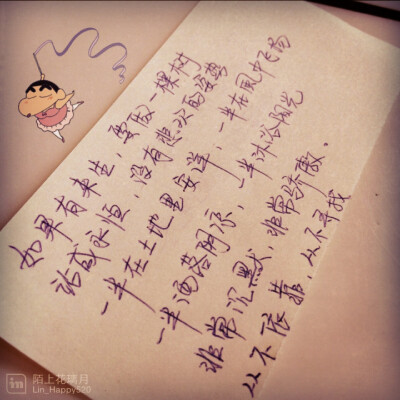 如果有来生，要做一棵树
站成永恒，没有悲欢的姿势
一半在土地里安详，一半在风中飞扬
一半洒落阴凉，一半沐浴阳光
非常沉默，非常骄傲。
从不依靠，从不寻找
in 陌上花琦月
Lin_Happy520